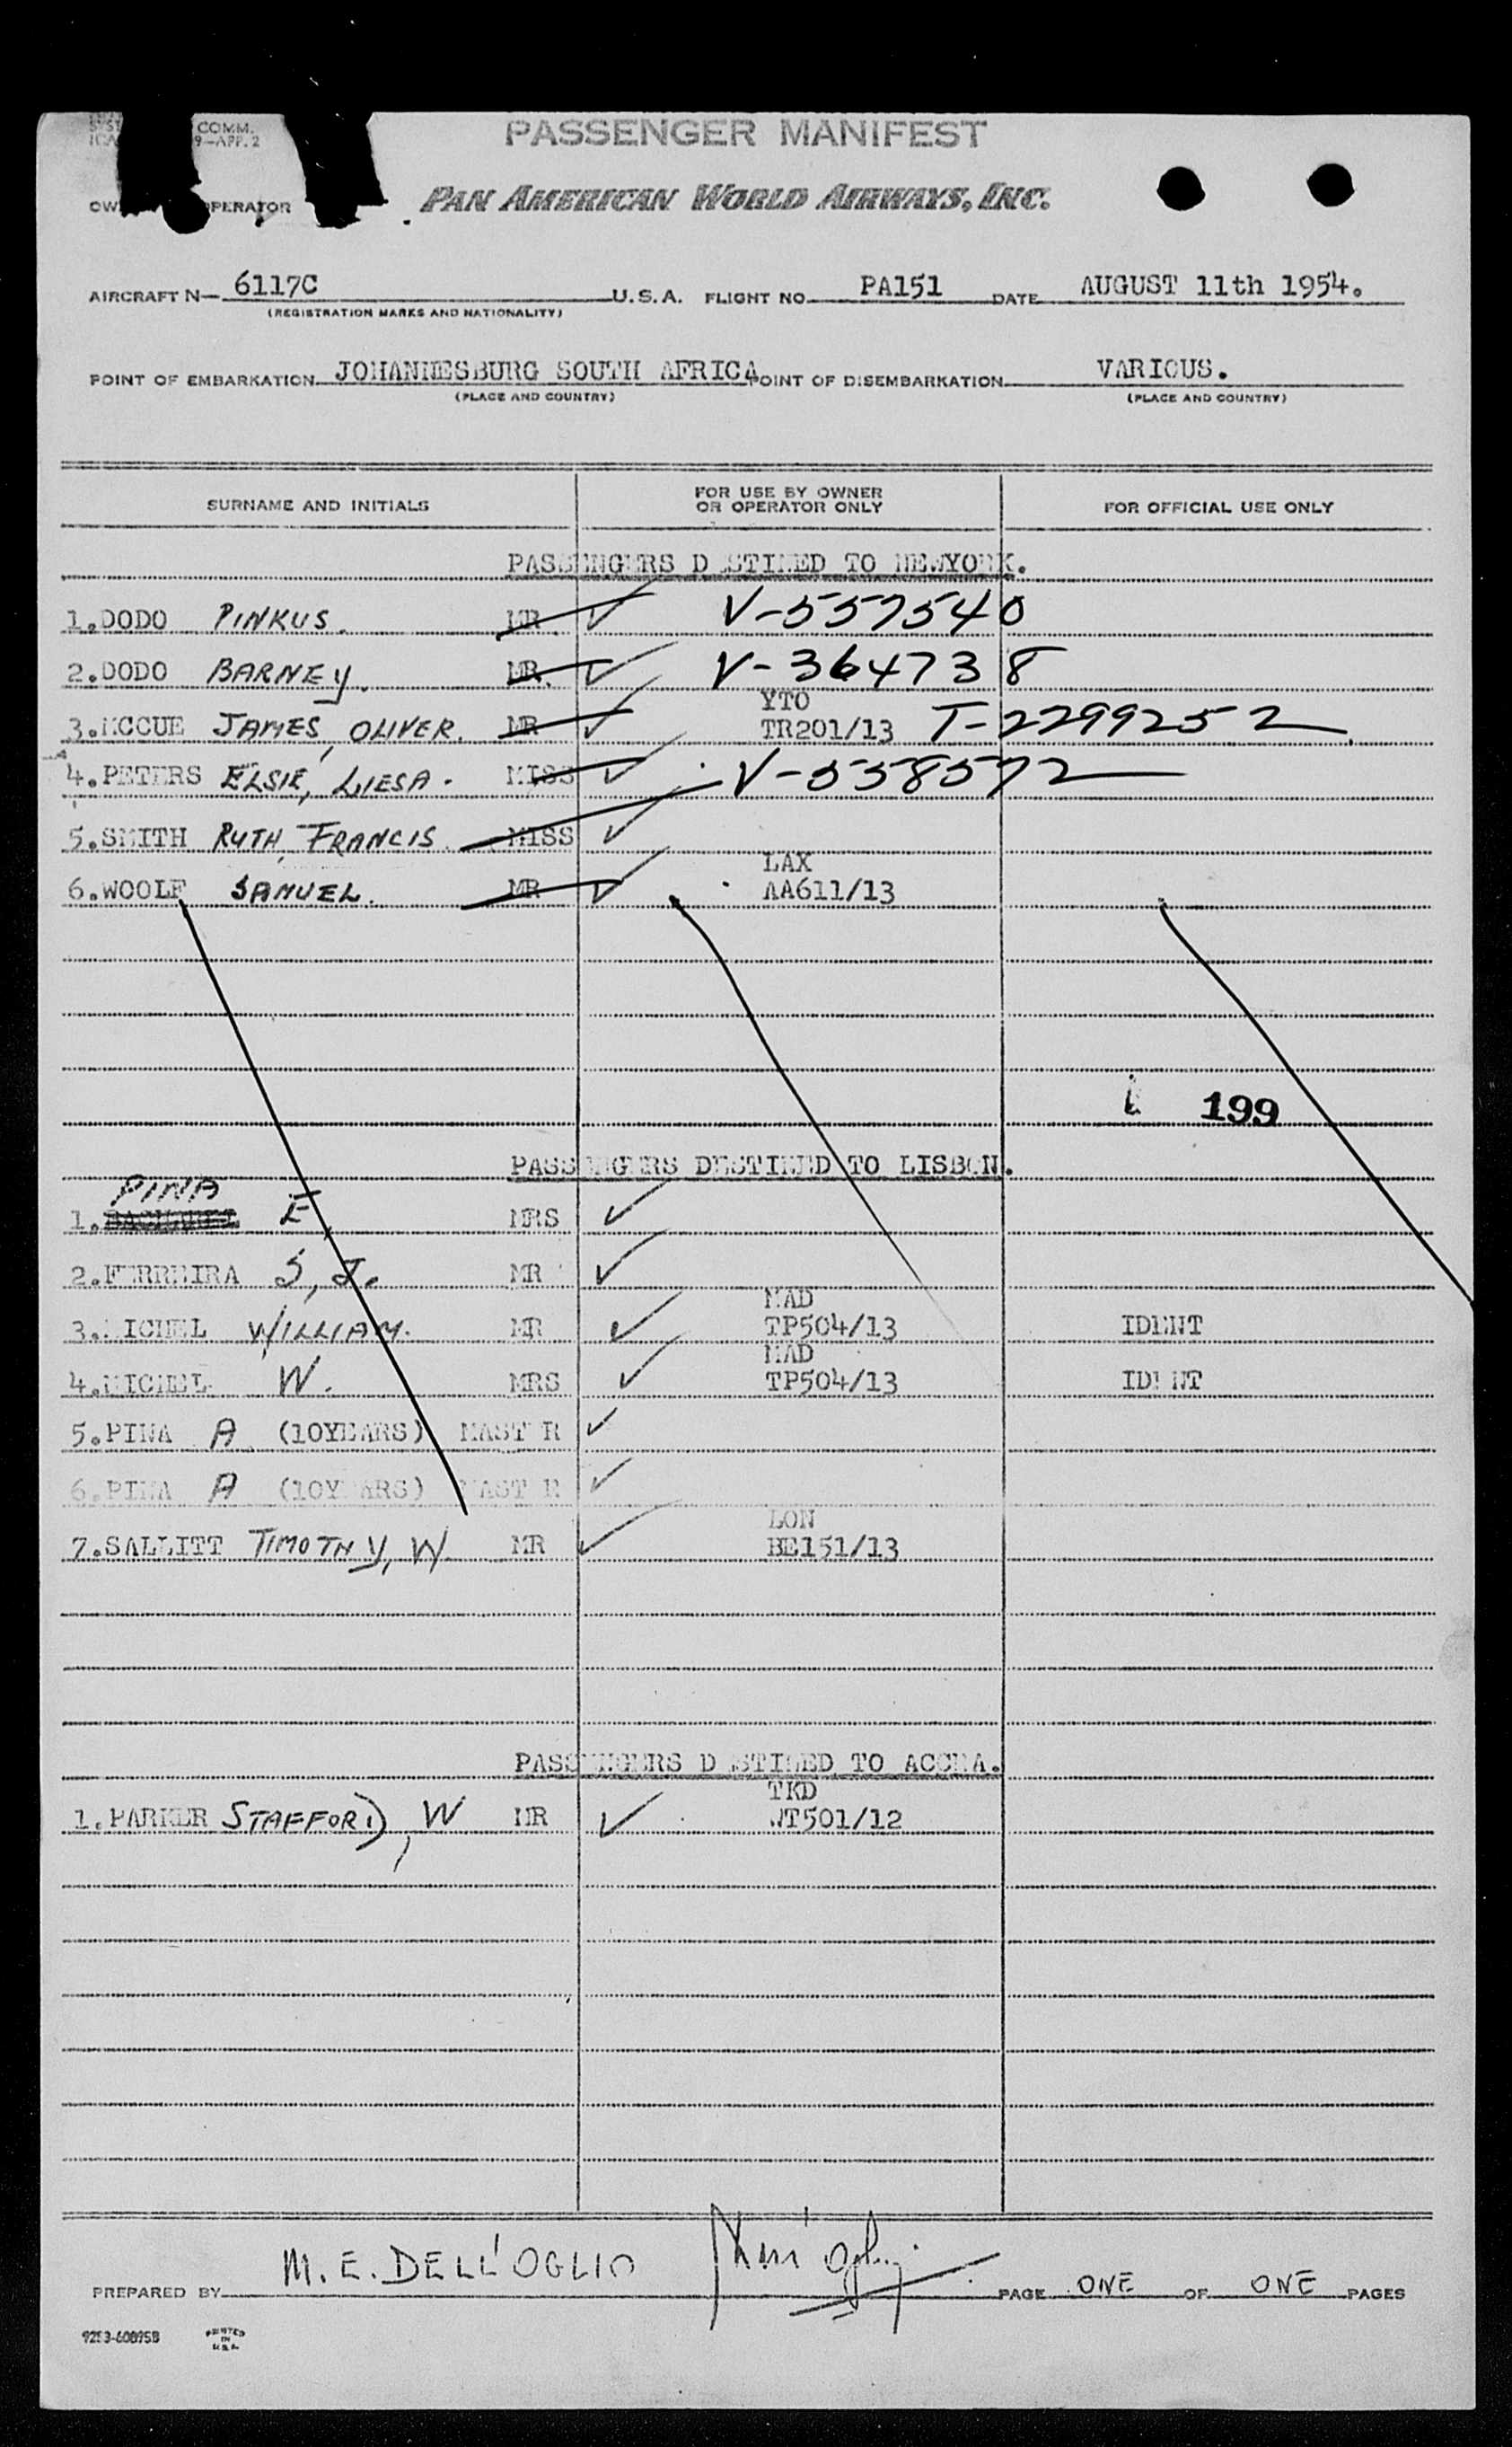 COMM.
9—APP. 2
PASSENGER MANIFEST
OPERATOR
PAN AMERICAN WORLD AIRWAYS, INC.
AIRCRAFT N— 6117C U.S.A. FLIGHT NO. PA151 DATE AUGUST 11th 1954.
(REGISTRATION MARKS AND NATIONALITY)
POINT OF EMBARKATION JOHANNESBURG SOUTH AFRICA POINT OF DISEMBARKATION VARIOUS.
(PLACE AND COUNTRY) (PLACE AND COUNTRY)
SURNAME AND INITIALS FOR USE BY OWNER OR OPERATOR ONLY FOR OFFICIAL USE ONLY
PASSENGERS DESTINED TO NEWYORK.
1.DODO PINKUS. MR ✓ V-557540
2.DODO BARNEY. MR. ✓ V-364738
YTO
3.MCCUE JAMES, OLIVER. MR ✓ TR201/13 T-2299252
4.PETERS ELSIE, LIESA. MISS ✓ V-558572
5.SMITH RUTH, FRANCIS. MISS ✓
LAX
6.WOOLF SAMUEL. MR ✓ AA611/13
199
PASSENGERS DESTINED TO LISBON.
PINA
1. E, MRS ✓
2.FERREIRA S, J. MR ✓
MAD
3.MICHEL WILLIAM. MR ✓ TP504/13 IDENT
MAD
4.MICHEL W. MRS ✓ TP504/13 IDENT
5.PINA A (10YEARS) MASTER ✓
6.PINA A (10YEARS) MASTER ✓
LON
7.SALLITT TIMOTHY, W. MR ✓ BE151/13
PASSENGERS DESTINED TO ACCRA.
TKD
1.PARKER STAFFORD, W MR ✓ WT501/12
PREPARED BY M.E. DELL'OGLIO PAGE ONE OF ONE PAGES
9253-60895B PRINTED IN U.S.A.